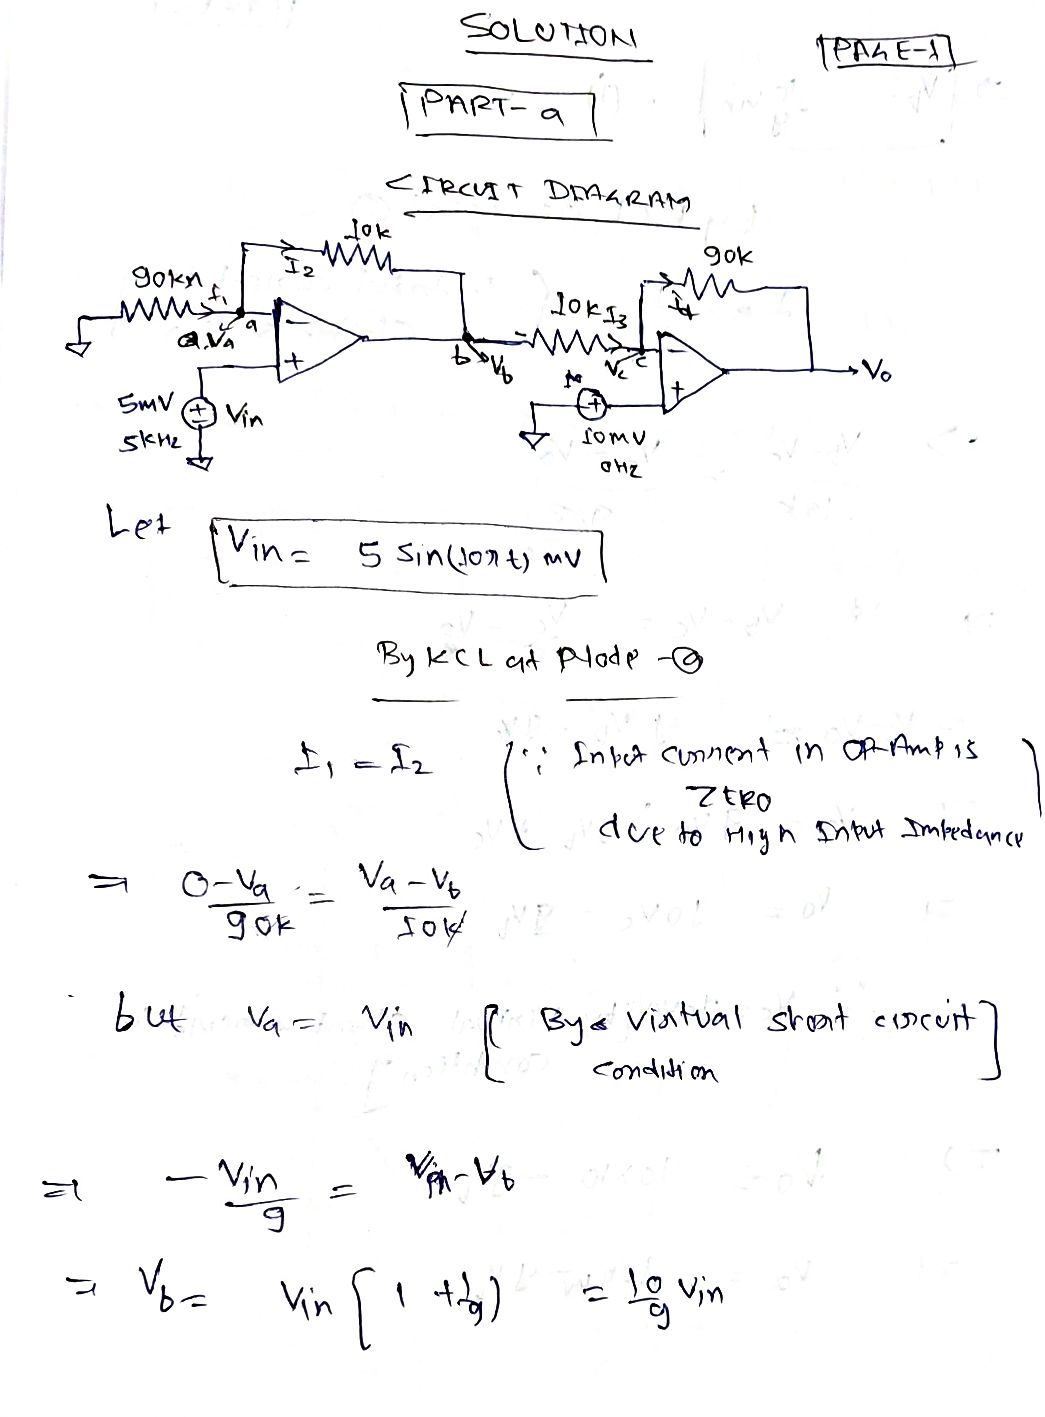 SOLUTION
PAGE-1
PART-a
CIRCUIT DIAGRAM
10k
I2
90kΩ
I1
a
Va
90k
10k I3
I4
b
Vb
Vc
c
Vo
5mV
5kHz
Vin
10mV
0Hz
Let
Vin = 5 Sin(10πt) mV
By KCL at Node -a
I1 = I2
∵ Input current in OP-Amp is
ZERO
due to High Input Impedance
⇒ 0-Va/90k = Va-Vb/10k
but Va = Vin
∵ By Virtual short circuit
condition
⇒ -Vin/9 = Vin-Vb
⇒ Vb = Vin [1 + 1/9) = 10/9 Vin